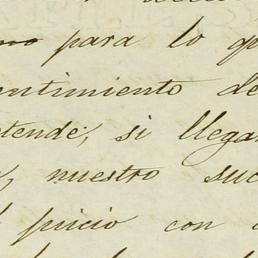 para lo q
entimiento de
tende, si llega
, nuestro suc
juicio con